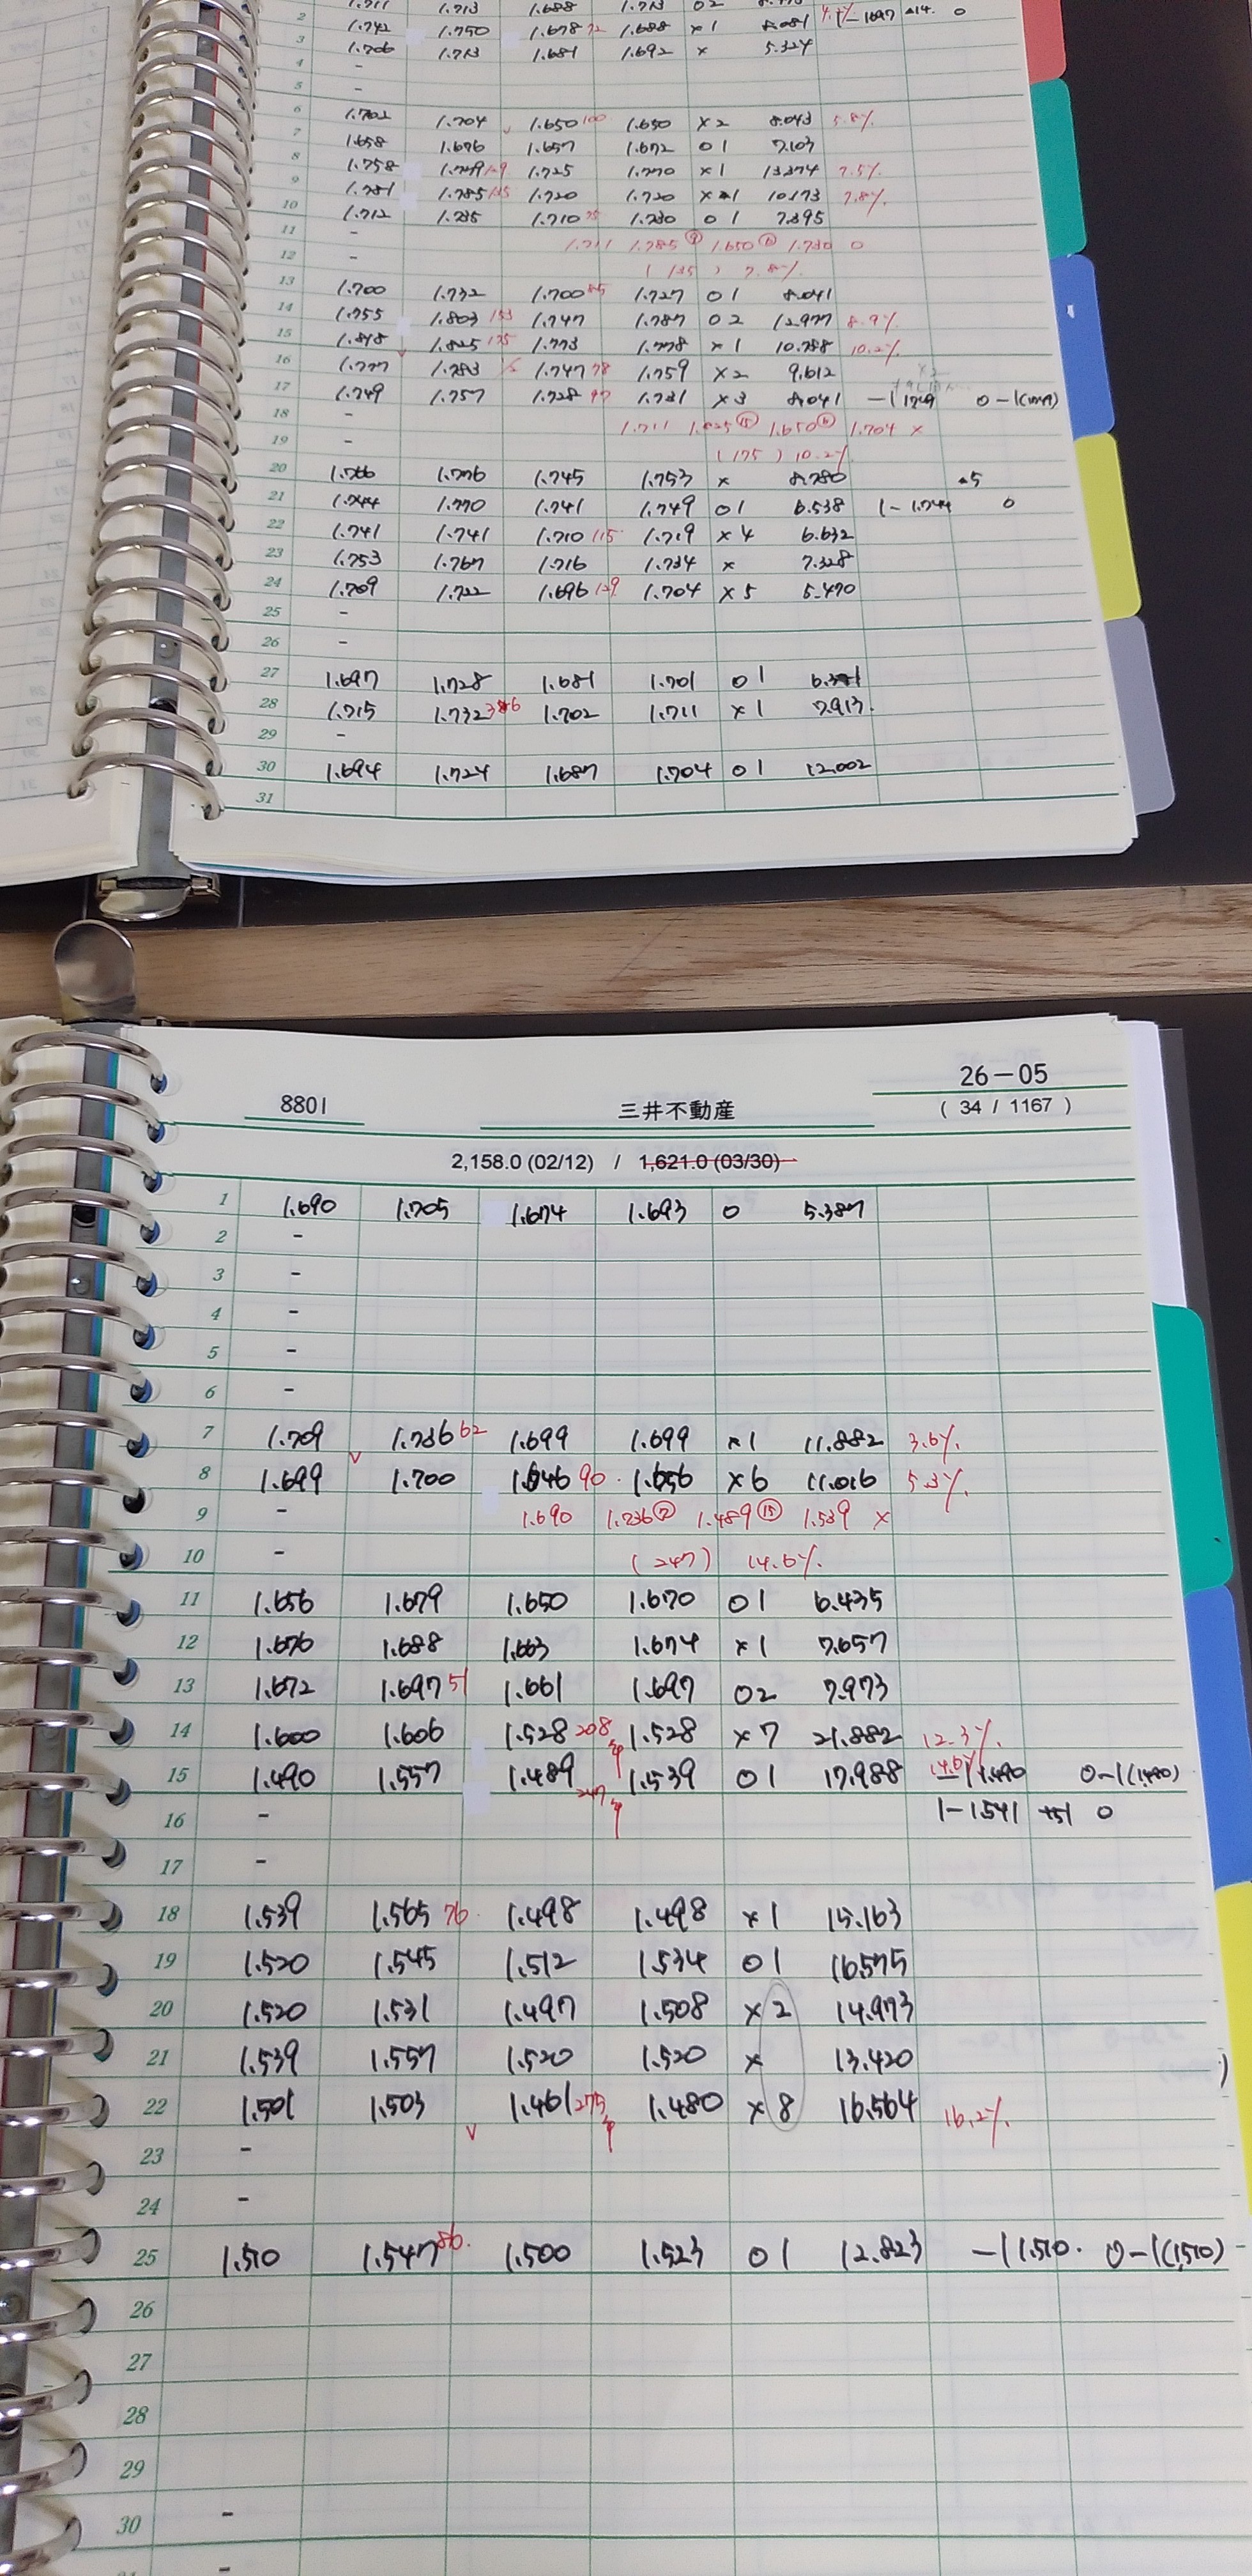 2 1.742 1.750 1.678 72 1.688 × 1 8.081
3 1.706 1.713 1.681 1.692 × 5.324
4 -
5 -
6 1.702 1.704 1.650 100 1.650 × 2 8.043 5.8%
7 1.658 1.676 1.657 1.672 0 1 7.103
8 1.758 1.725 1.770 × 1 13.374 7.5%
9 1.781 1.785 135 1.720 1.720 × 1 10.173 7.8%
10 1.712 1.735 1.710 75 1.730 0 1 7.395
11 - 1.711 1.785 ⑨ 1.650 ⑥ 1.730 0
12 - ( 135 ) 7.8%
13 1.700 1.732 1.700 85 1.727 0 1 8.041
14 1.755 1.803 153 1.747 1.787 0 2 12.977 8.9%
15 1.848 1.825 175 1.773 1.778 × 1 10.788 10.2%
16 1.777 1.783 1.747 78 1.759 × 2 9.612
17 1.749 1.757 1.728 97 1.731 × 3 8.041 -1 1.749 0-1(1.749)
18 - 1.711 1.825 ⑮ 1.650 ⑥ 1.704 ×
19 - ( 175 ) 10.2%
20 1.766 1.776 1.745 1.753 × 8.780 ▲5
21 1.744 1.770 1.741 1.749 0 1 6.538 1-1.744 0
22 1.741 1.741 1.710 115 1.719 × 4 6.632
23 1.753 1.767 1.716 1.734 × 7.328
24 1.709 1.722 1.696 129 1.704 × 5 5.470
25 -
26 -
27 1.697 1.728 1.681 1.701 0 1
28 1.715 1.732 1.702 1.711 × 1 7.913
29 -
30 1.694 1.724 1.687 1.704 0 1 12.002
31
26-05
8801 三井不動産 ( 34 / 1167 )
2,158.0 (02/12) / 1,621.0 (03/30)
1 1.690 1.705 1.674 1.693 0 5.387
2 -
3 -
4 -
5 -
6 -
7 1.709 1.736 62 1.699 1.699 × 1 11.882 3.6%
8 1.699 1.700 1.646 90 1.656 × 6 11.016 5.3%
9 - 1.690 1.736 ⑦ 1.489 ⑮ 1.539 ×
10 - ( 247 ) 14.6%
11 1.656 1.679 1.650 1.670 0 1 6.435
12 1.676 1.688 1.663 1.674 × 1 7.657
13 1.672 1.697 51 1.661 1.697 0 2 7.973
14 1.600 1.606 1.528 208 1.528 × 7 21.882 12.3%
15 1.490 1.557 1.489 247 1.539 0 1 17.988 14.6% -1 1.490 0-1(1.490)
16 - 1-1.541 +51 0
17 -
18 1.539 1.565 76 1.498 1.498 × 1 15.163
19 1.520 1.545 1.512 1.534 0 1 16.575
20 1.520 1.531 1.497 1.508 × 2 14.973
21 1.539 1.557 1.520 1.520 × 13.420
22 1.501 1.503 1.461 275 1.480 × 8 16.564 16.2%
23 -
24 -
25 1.510 1.547 86 1.500 1.523 0 1 12.823 -1 1.510 0-1(1.510)
26
27
28
29
30 -